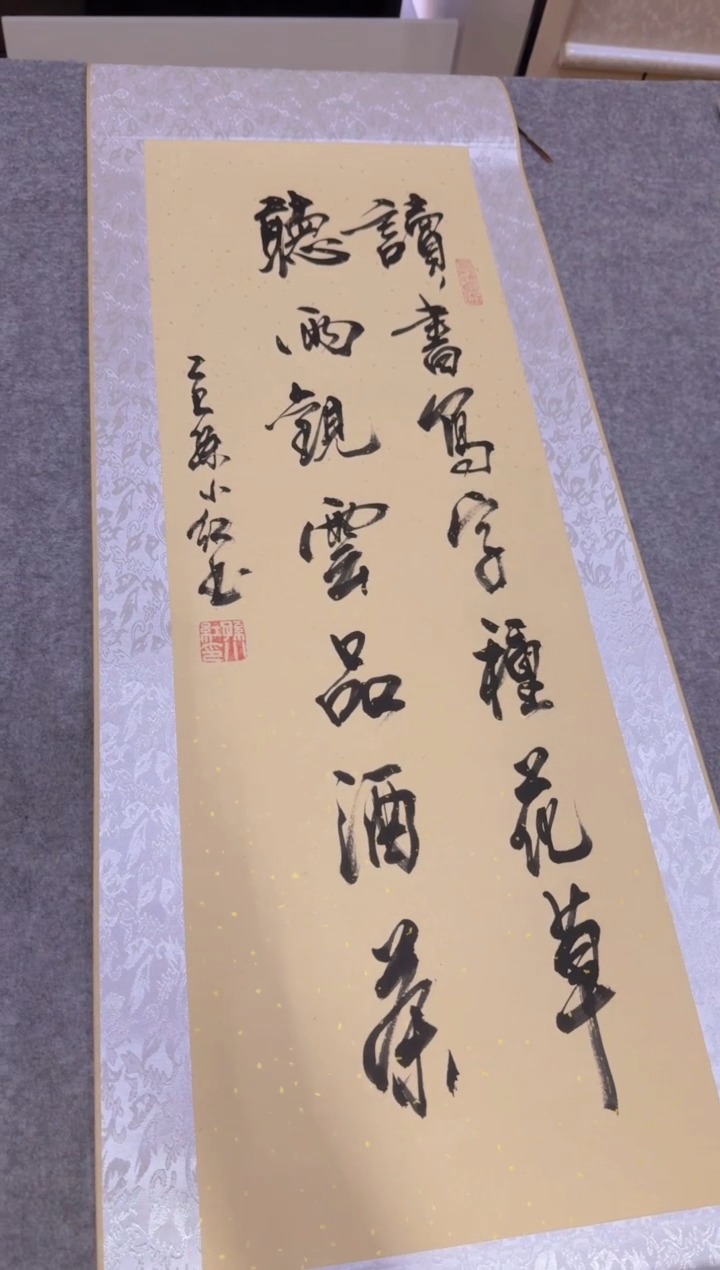 讀書寫字種花草
聽雨觀雲品酒茶
孫小紅書